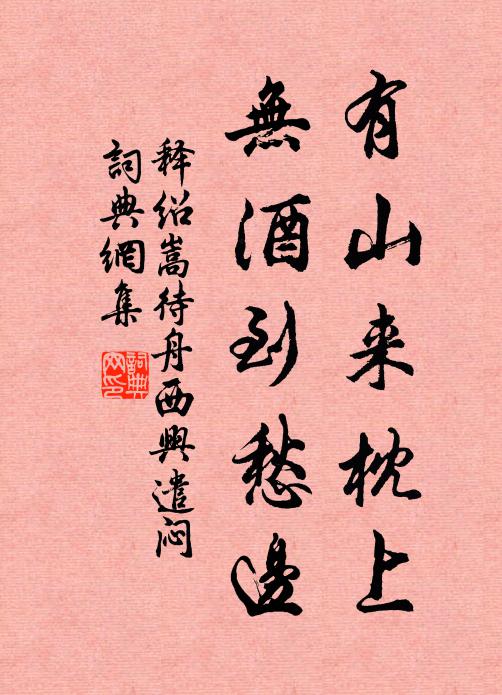 有山来枕上
無酒到愁邊
释绍嵩待舟西興遣闷
詞典網集
詞典網印